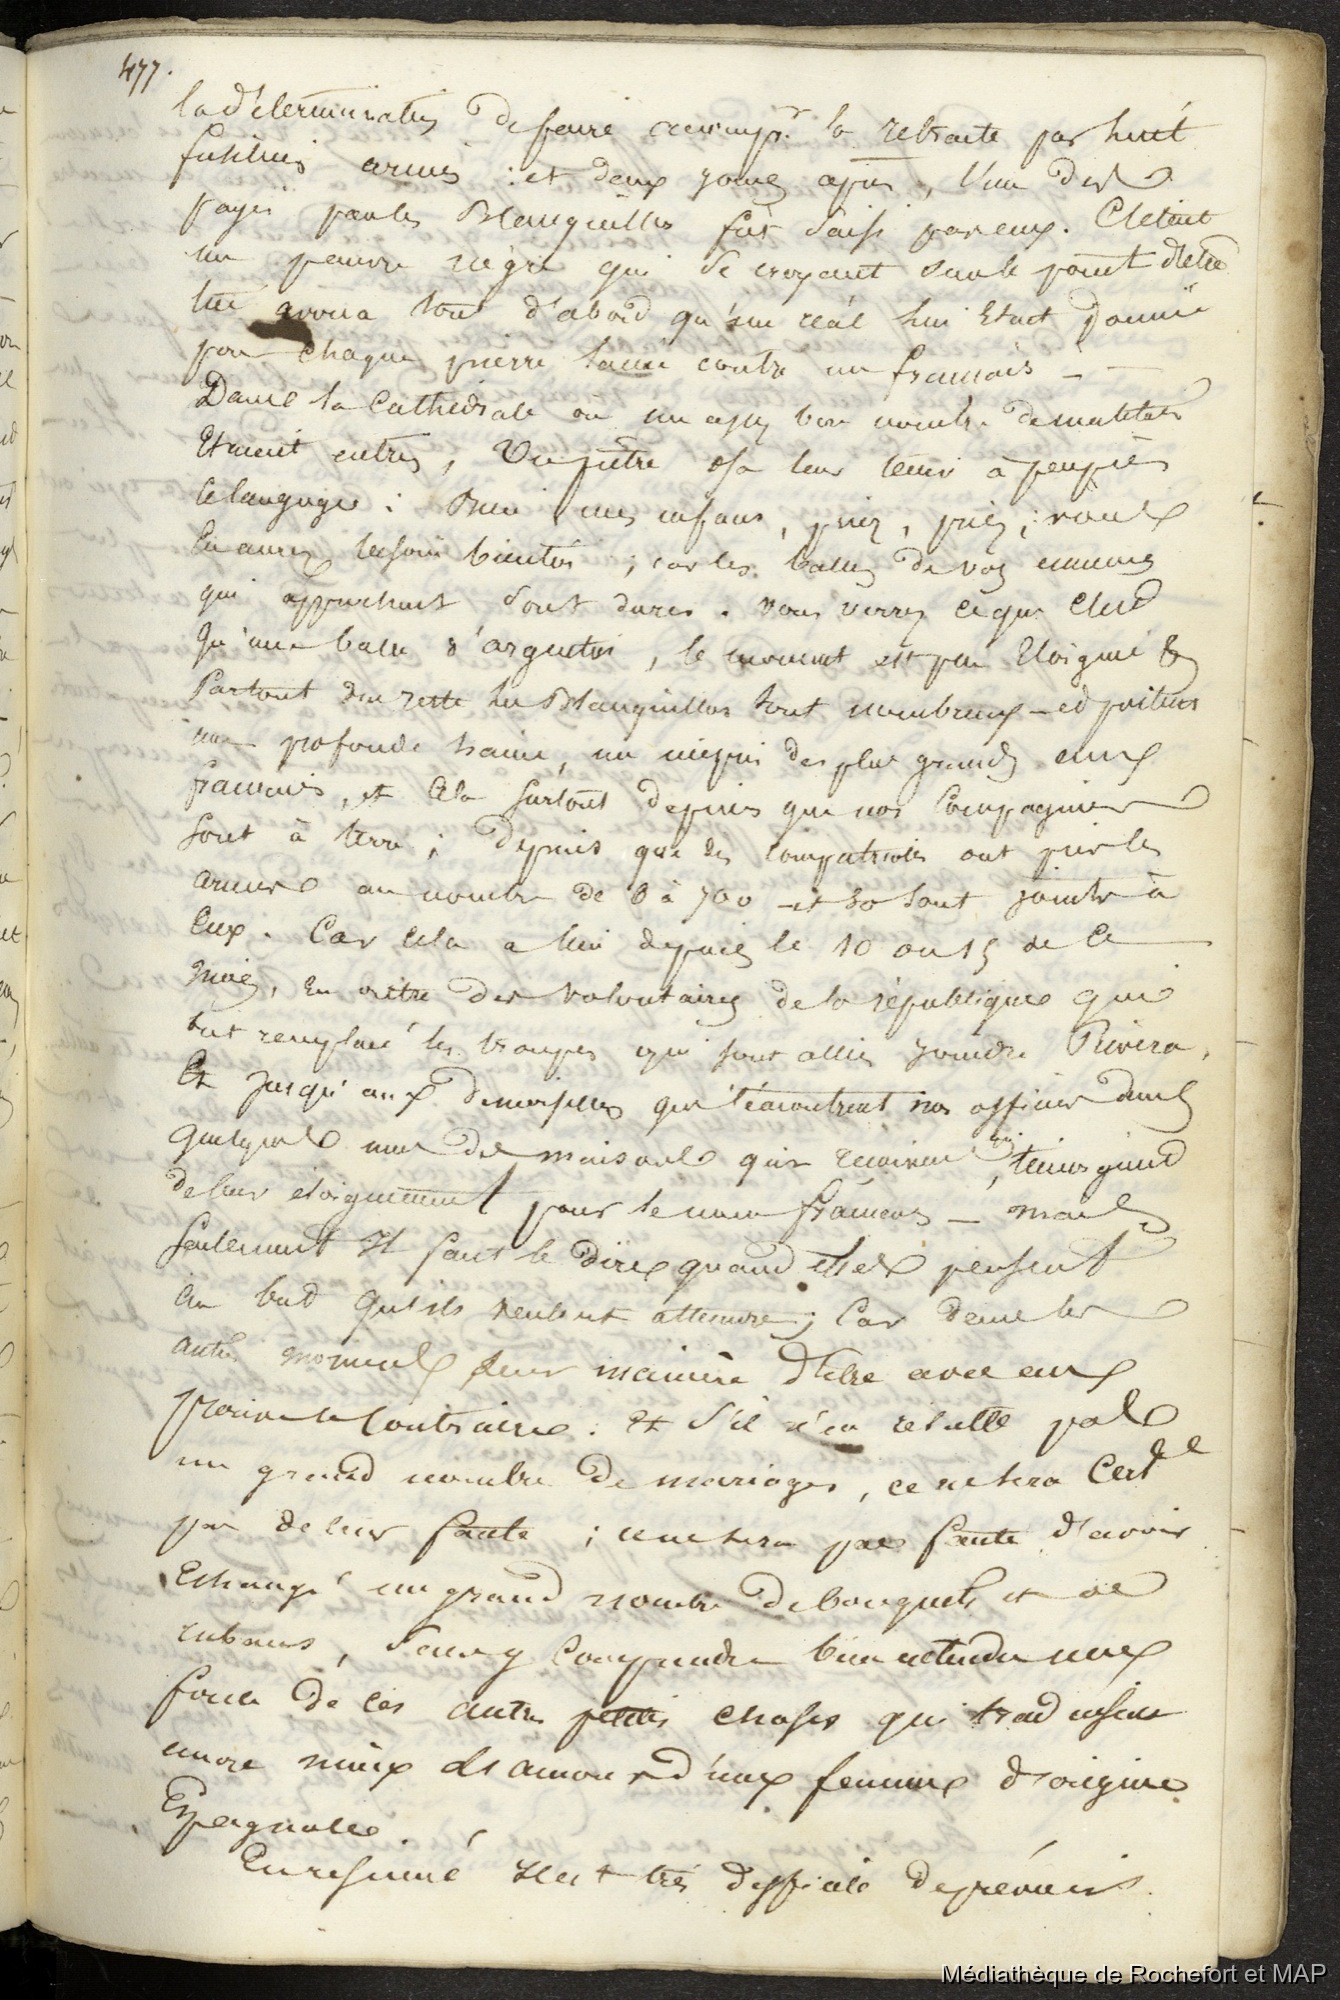 477.
la d'étermination de faire accomp.r la retraite par huit
fusiliers armés : et deux jours après, l'un des
payés par les Blanquillos fut saisi par eux. C'était
un pauvre nègre qui se croyant sur le point d'être
tué avoua tout d'abord qu'un réal lui était donné
pour chaque pierre lancée contre un français --
Dans la Cathédrale où un assez bon nombre de matelots
étaient entrés, Un prêtre osa leur tenir à peu près
ce langage : Priez mes enfans, priez, priez; vous
en aurez besoin bientôt ; car les balles de vos ennemis
qui approchent sont dures. Vous verrez ce que c'est
qu'une balle d'argentin, le moment est peu éloigné &
Partout du reste les Blanquillos sont nombreux - et portent
une profonde haine, un mépris des plus grands aux
français, et cela surtout depuis que nos Compagnies
sont à terre ; depuis que les compatriotes ont pris les
armes au nombre de 6 à 700 - et se sont joints à
eux. Car cela a lieu depuis le 10 ou 15 de ce
mois, en outre des volontaires de la république qui
ont remplacé les troupes qui sont allées joindre Rivera.
Et jusqu'aux demoiselles que rencontrent nos officiers dans
quelques unes des maisons qui reçoivent, témoignent
de leur éloignement pour le nom français - mais
seulement il faut le dire quand elles pensent
au but qu'ils veulent atteindre; Car dans les
autres moments leur manière d'être avec eux
prouve le contraire : Et s'il n'en résulte pas
un grand nombre de mariages, ce ne sera cert.
pas de leur faute ; ce ne sera pas faute d'avoir
échangé un grand nombre de bouquets et de
rubans, sans y comprendre bien entendu une
foule de ces autres petites choses qui traduisent
encore mieux les amours d'une femme d'origine
Espagnolle.
En résumé il est très difficile de prévoir
Médiathèque de Rochefort et MAP